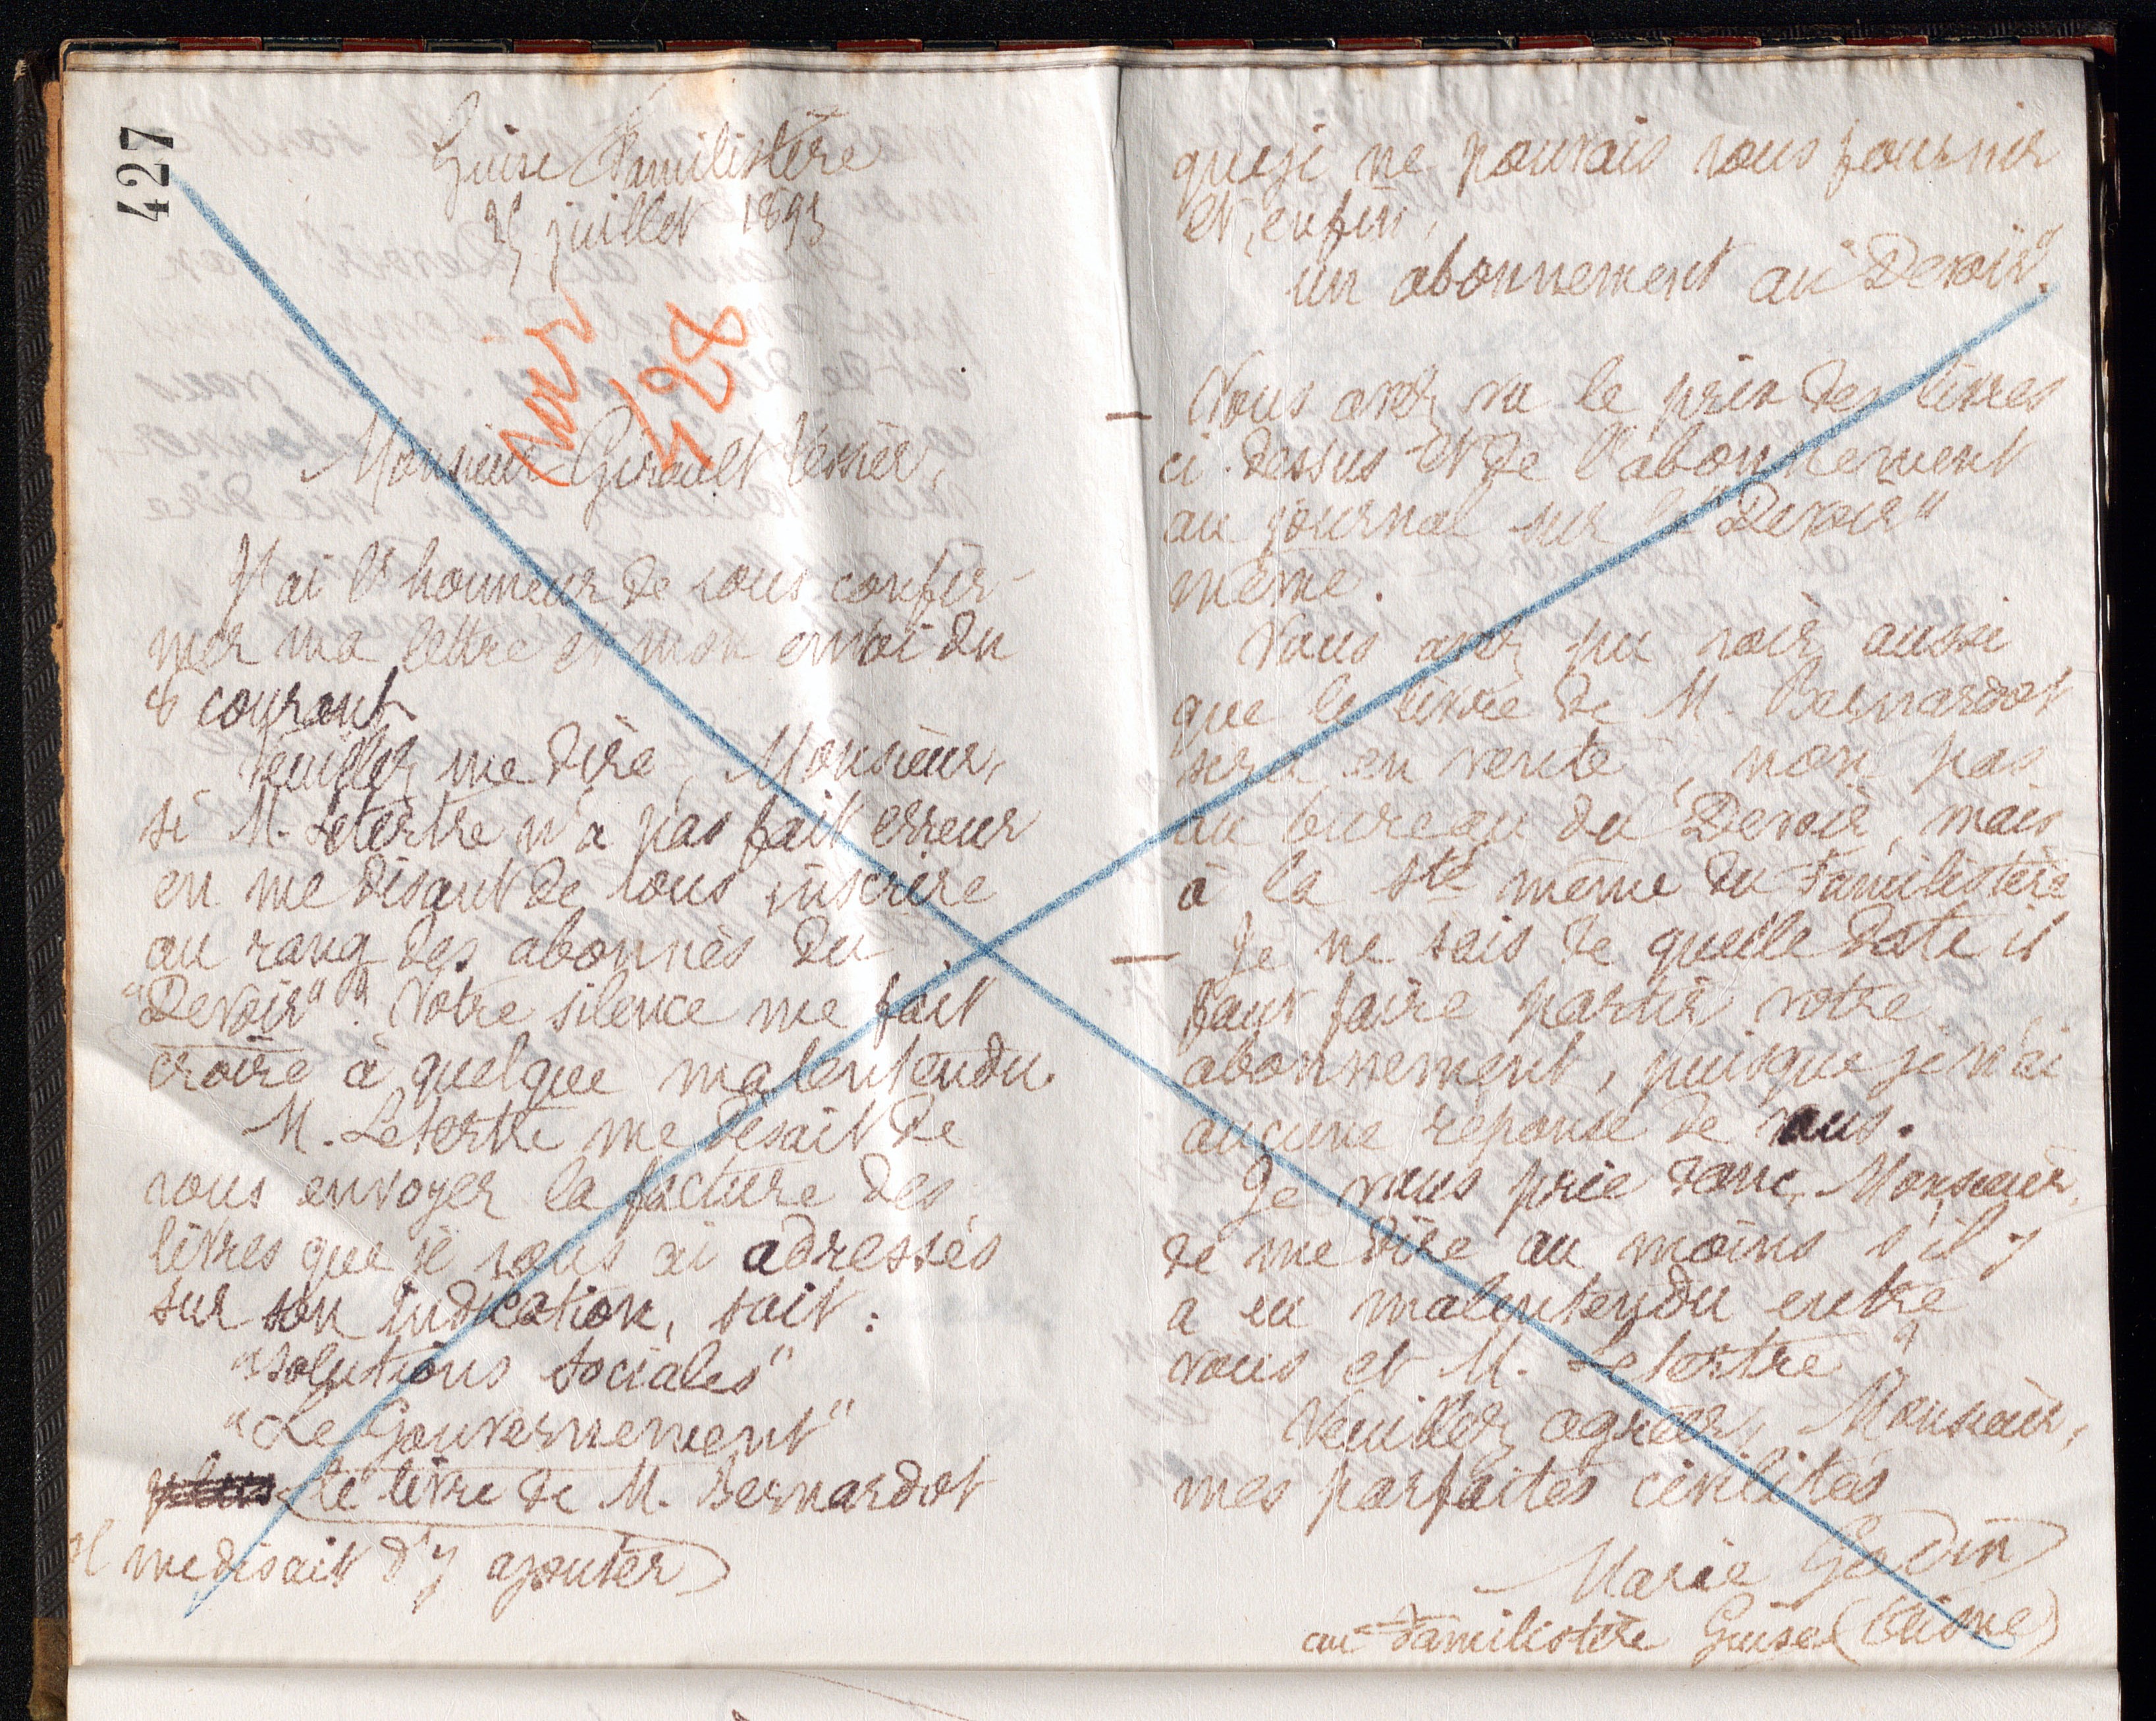 427
Guise Familistère
25 juillet 1893
Voir
428
Monsieur Girault Tessier,
J'ai l'honneur de vous confir-
mer ma lettre et mon envoi du
8 courant
Veuillez me dire, Monsieur,
si M. Letertre n'a pas fait erreur
en me disant de vous inscrire
au rang des abonnés du
"Devoir"? Votre silence me fait
croire à quelque malentendu.
M. Letertre me disait de
vous envoyer la facture des
livres que je vous ai adressés
sur son indication, soit :
"Solutions sociales"
"Le Gouvernement"
plus le livre de M. Bernardot
Il me disait d'y ajouter
que je ne pouvais vous fournir
et, enfin,
un abonnement au "Devoir".
Vous avez vu le prix des livres
ci-dessus et de l'abonnement
au journal sur le "Devoir"
même.
Vous avez pu voir aussi
que le livre de M. Bernardot
sera en vente, non pas
au bureau du Devoir, mais
à la Sté même du Familistère
Je ne sais de quelle date il
faut faire partir votre
abonnement, puisque je n'ai
aucune réponse de vous.
Je vous prie donc, Monsieur,
de me dire au moins s'il y
a eu malentendu entre
vous et M. Letertre ?
Veuillez agréer, Monsieur,
mes parfaites civilités
Marie Godin
au Familistère Guise (Aisne)